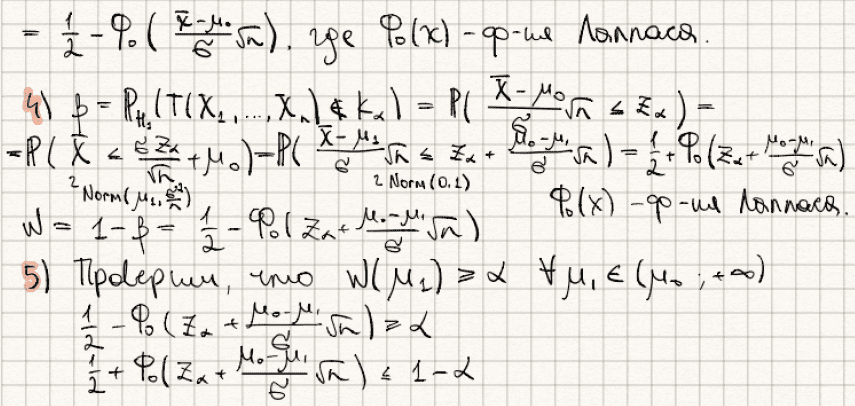 = 1/2 - Φ₀( (x̄-μ₀)/σ √n ), где Φ₀(x) - ф-ия Лапласа.
4) β = P_H₁(T(X₁,...,Xₙ) ∉ K_α) = P( (X̄-μ₀)/σ √n ≤ z_α ) =
= P( X̄ ≤ σz_α/√n + μ₀ ) = P( (X̄-μ₁)/σ √n ≤ z_α + (μ₀-μ₁)/σ √n ) = 1/2 + Φ₀(z_α + (μ₀-μ₁)/σ √n)
~ Norm(μ₁, σ²/n) ~ Norm(0,1)
Φ₀(x) - ф-ия Лапласа.
W = 1-β = 1/2 - Φ₀( z_α + (μ₀-μ₁)/σ √n )
5) Проверим, что W(μ₁) ≥ α ∀ μ₁ ∈ (μ₀ ; +∞)
1/2 - Φ₀( z_α + (μ₀-μ₁)/σ √n ) ≥ α
1/2 + Φ₀( z_α + (μ₀-μ₁)/σ √n ) ≤ 1-α